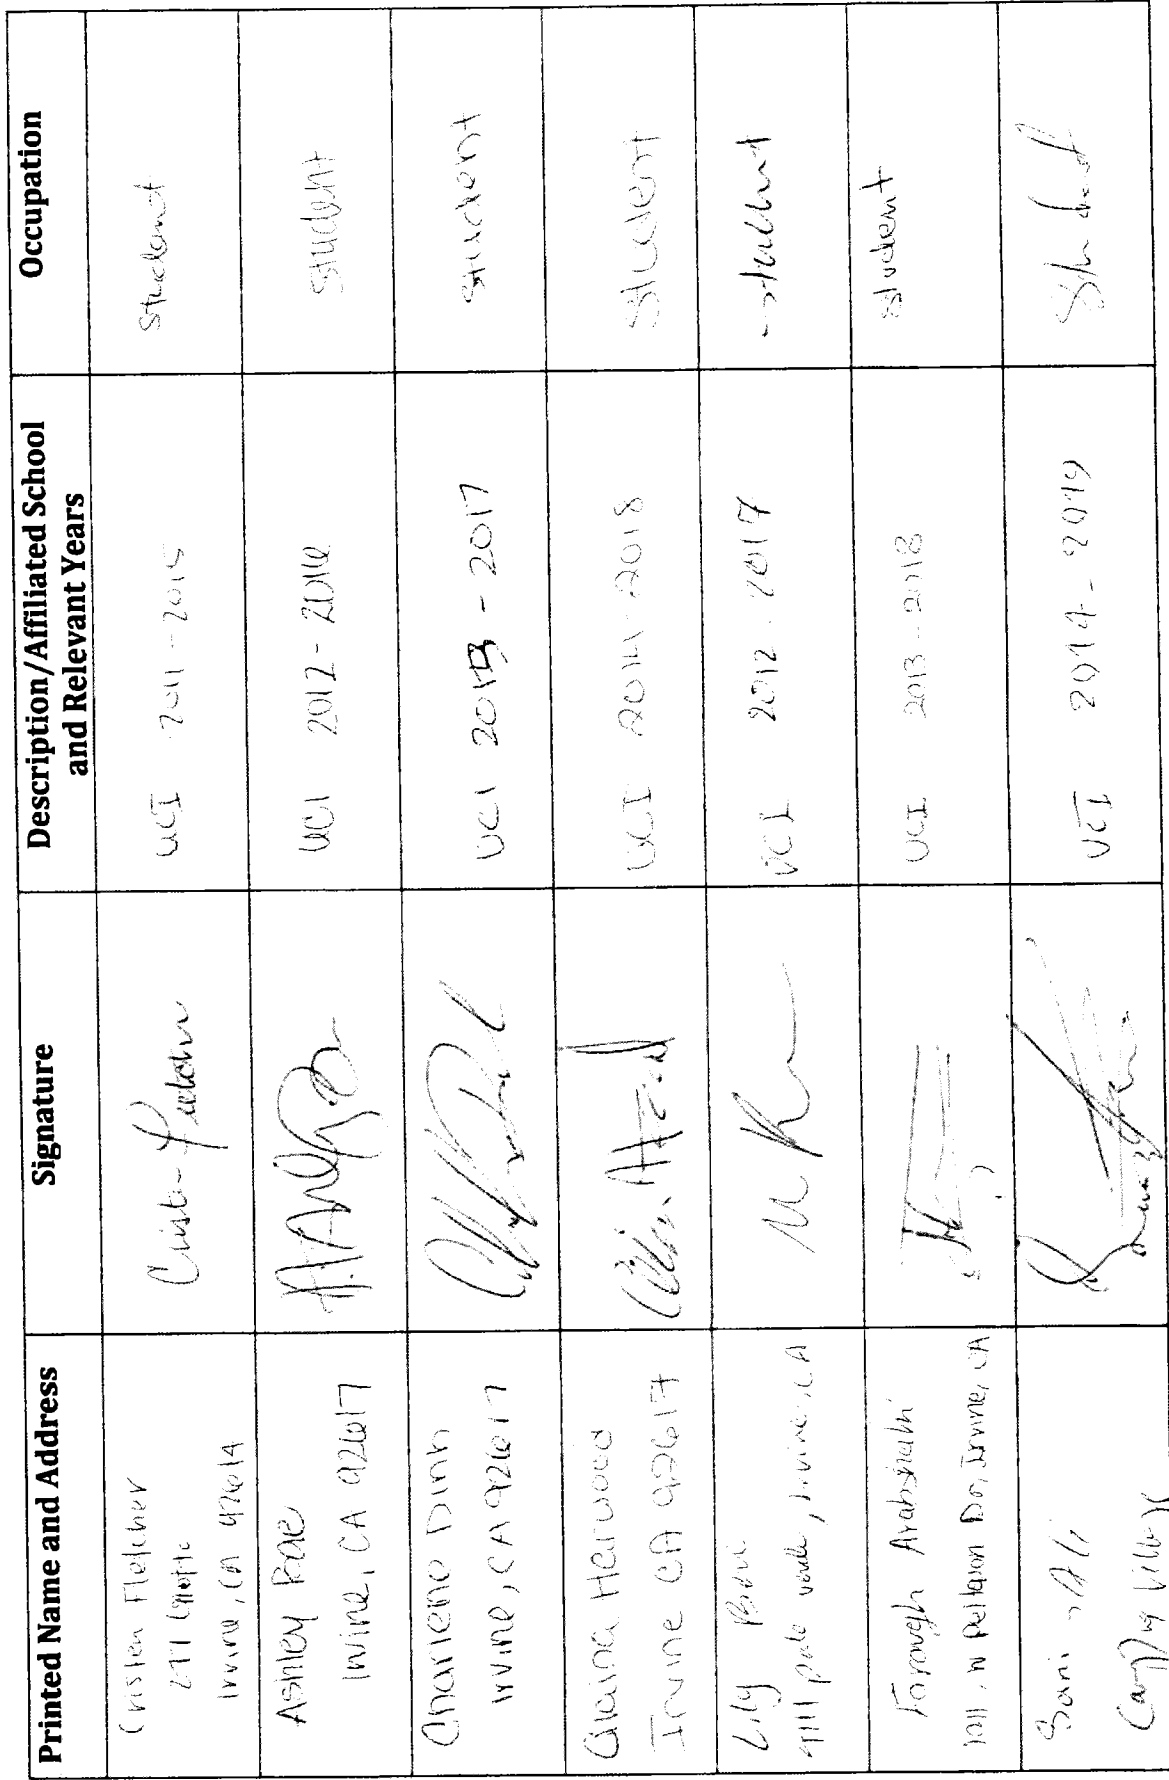 Printed Name and Address
Signature
Description/Affiliated School
and Relevant Years
Occupation
Cristen Fletcher
277
Irvine, CA 92614
UCI 2011-2015
Student
Ashley Bae
Irvine, CA 92617
UCI 2012-2016
Student
Charlene Dinh
Irvine, CA 92617
UCI 2013 - 2017
Student
Alaina Heywood
Irvine CA 92617
UCI 2014-2018
Student
Lily
palo verde, Irvine, CA
UCI 2012-2017
student
Forough Arabshahi
W Peltason Dr, Irvine, CA
UCI 2013-2018
student
Sami
Village
UCI 2014-2019
Student